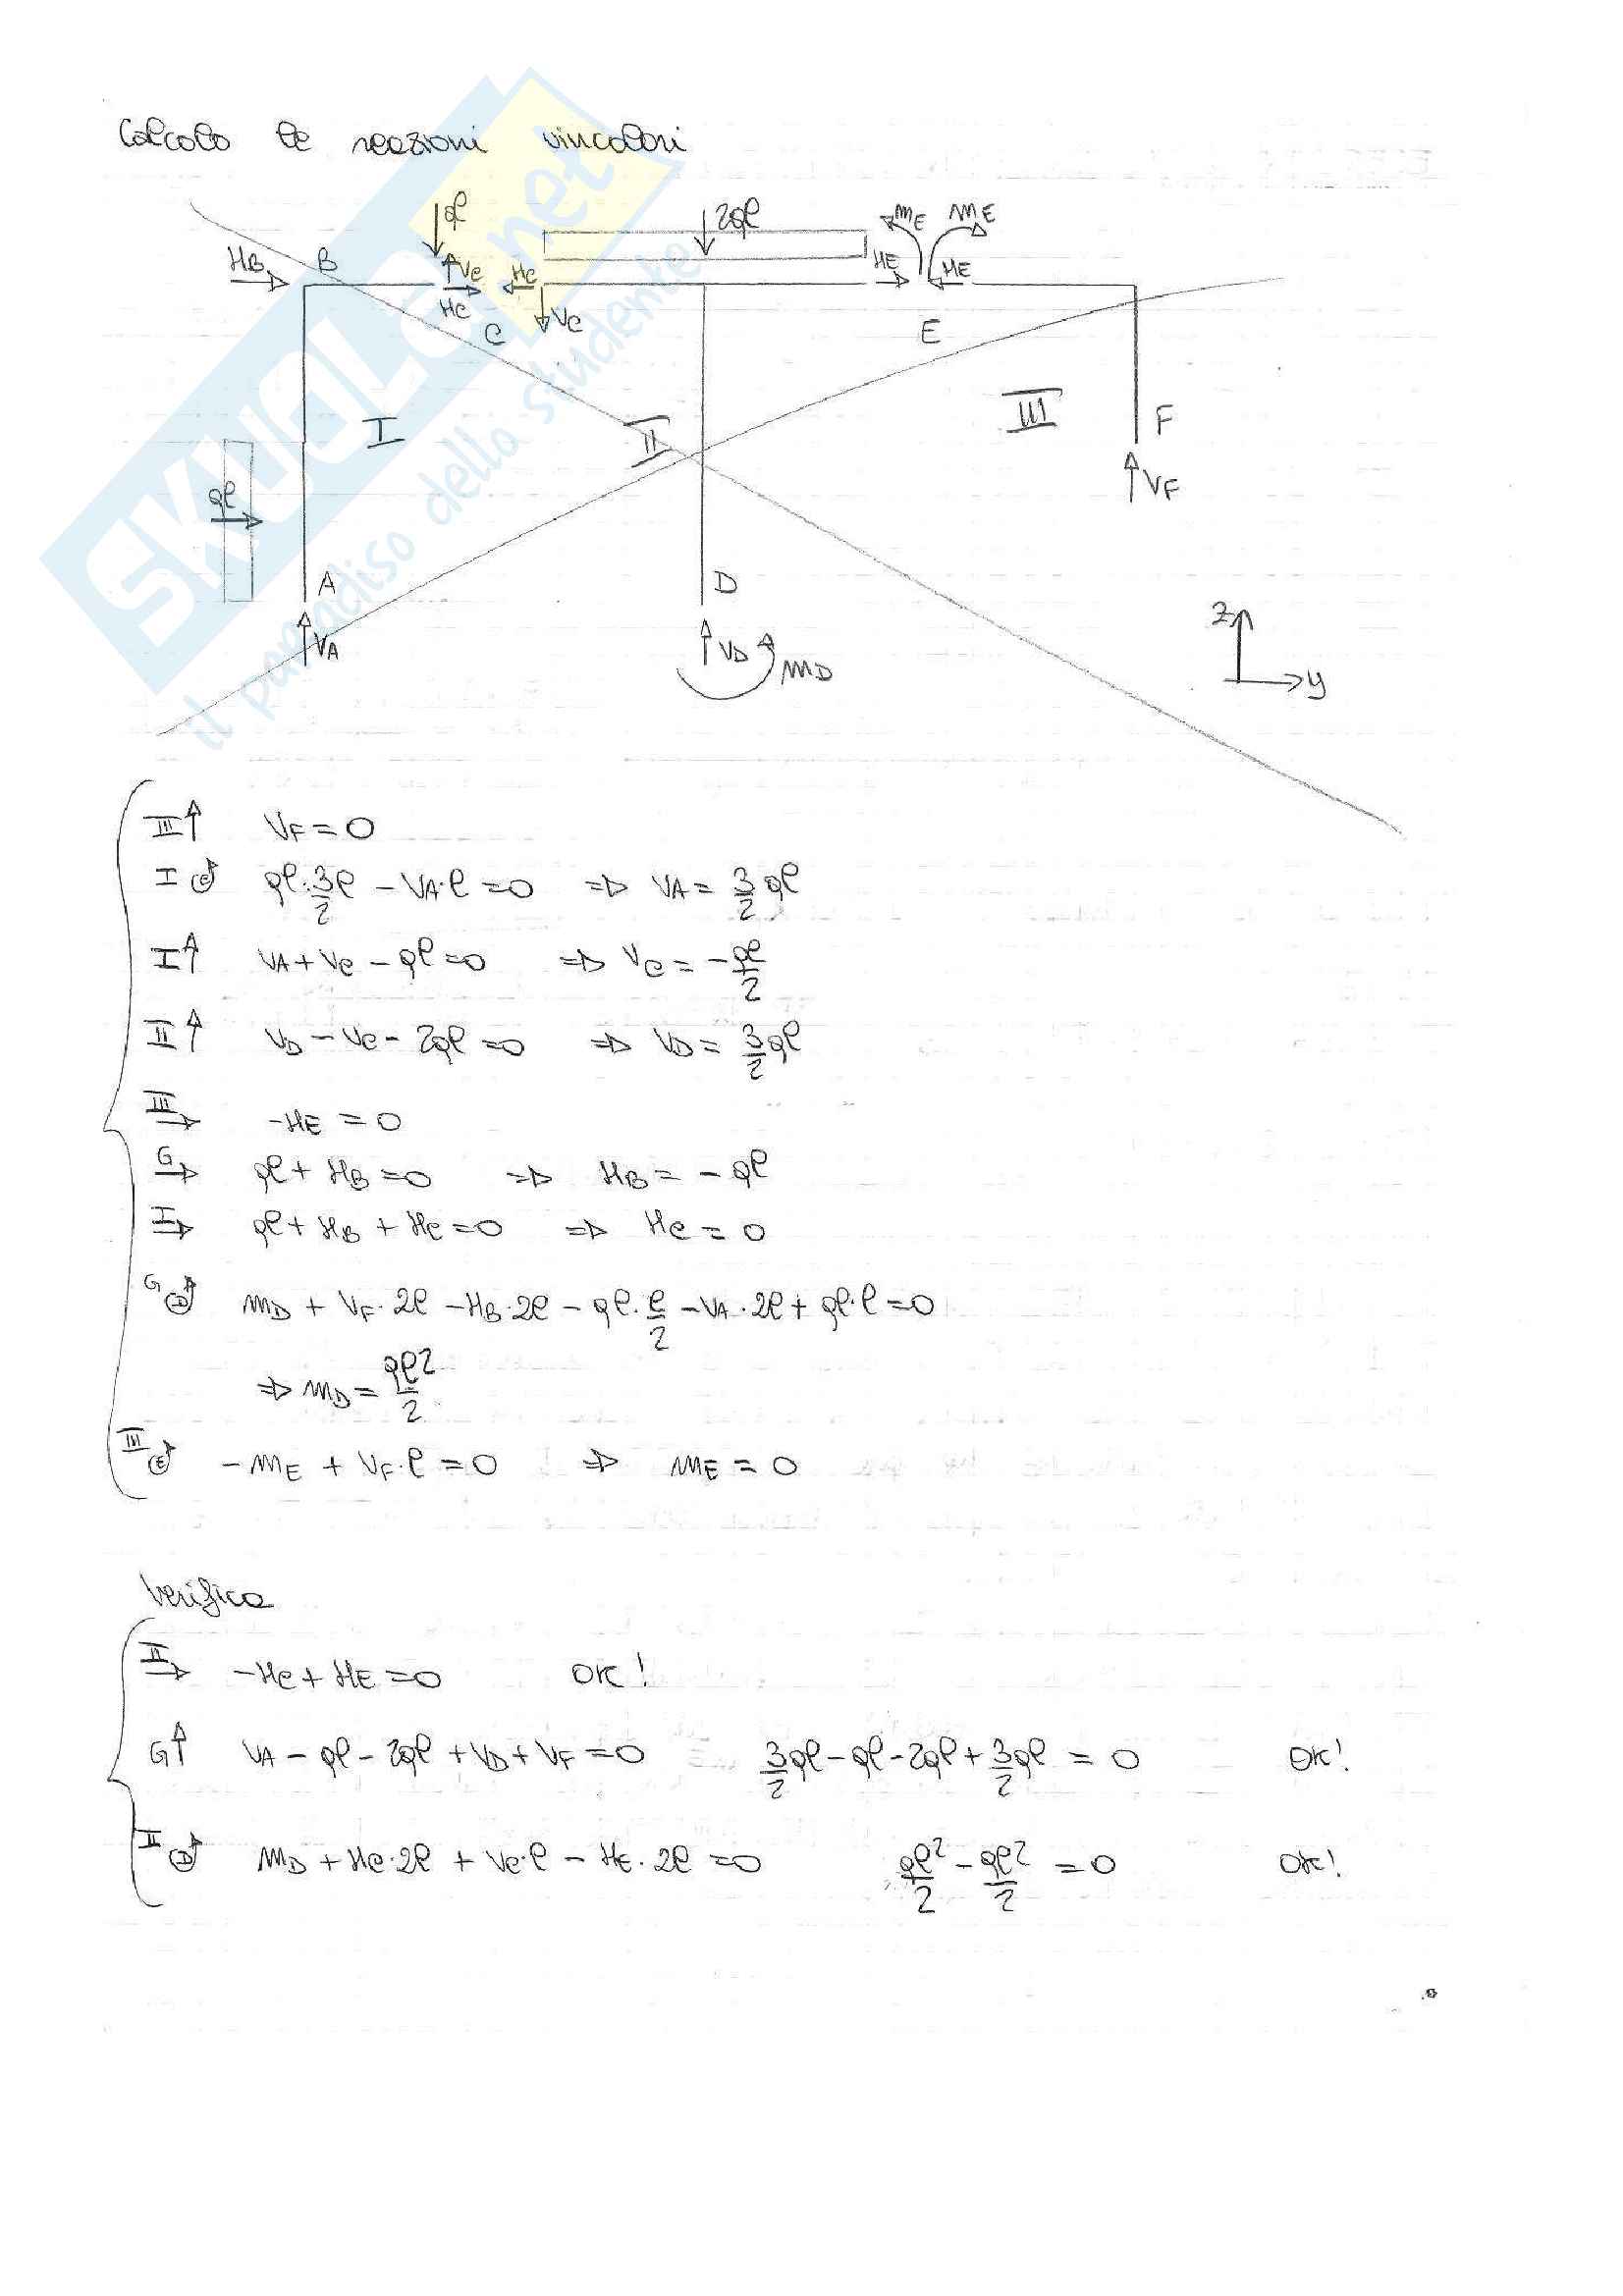 Calcolo le reazioni vincolari
qℓ 2qℓ mE mE
HB B VC HC HE HE
HC C VC E
I II III F
VF
qℓ
A D
VA VD mD
z
y
SKUOLA.net
il paradiso dello studente
III↑ VF = 0
I C↺ qℓ·3/2 ℓ - VA·ℓ = 0 ⇒ VA = 3/2 qℓ
I↑ VA + VC - qℓ = 0 ⇒ VC = -qℓ/2
II↑ VD - VC - 2qℓ = 0 ⇒ VD = 3/2 qℓ
III→ -HE = 0
G→ qℓ + HB = 0 ⇒ HB = - qℓ
I→ qℓ + HB + HC = 0 ⇒ HC = 0
G D↺ mD + VF·2ℓ - HB·2ℓ - qℓ·ℓ/2 - VA·2ℓ + qℓ·ℓ = 0
⇒ mD = qℓ²/2
III E↺ - mE + VF·ℓ = 0 ⇒ mE = 0
Verifica
II→ -HC + HE = 0 OK!
G↑ VA - qℓ - 2qℓ + VD + VF = 0 3/2 qℓ - qℓ - 2qℓ + 3/2 qℓ = 0 OK!
II D↺ mD + HC·2ℓ + VC·ℓ - HE·2ℓ = 0 qℓ²/2 - qℓ²/2 = 0 OK!